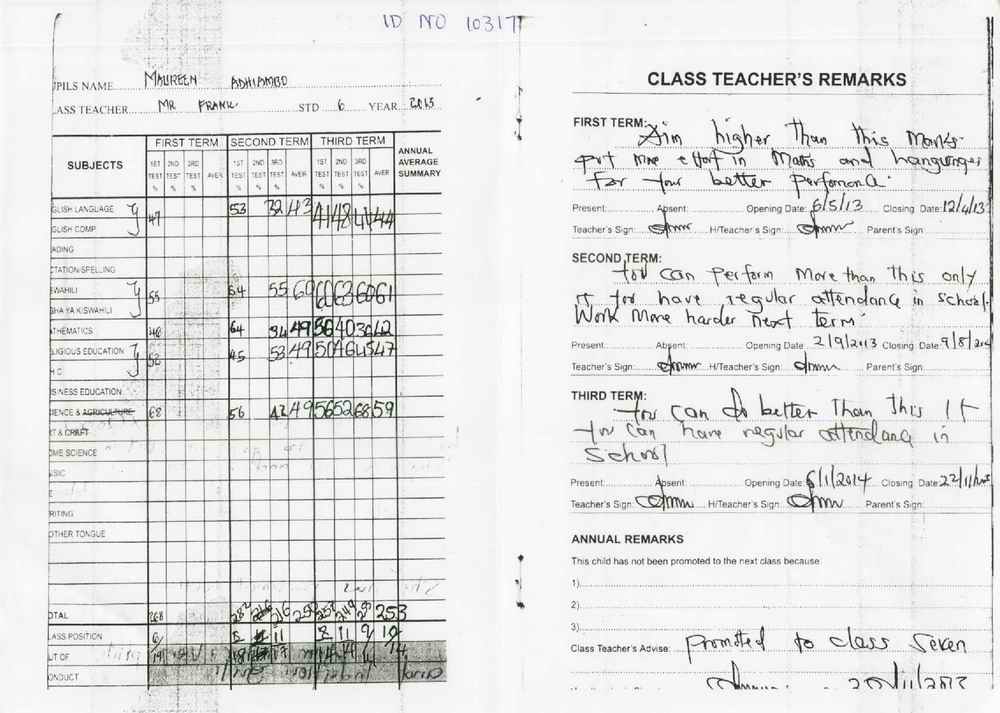 ID NO 10317
PILS NAME MAUREEN ADHIAMBO
ASS TEACHER MR FRANK STD 6 YEAR 2013
SUBJECTS FIRST TERM SECOND TERM THIRD TERM ANNUAL AVERAGE SUMMARY
1ST TEST % 2ND TEST % 3RD TEST % AVER 1ST TEST % 2ND TEST % 3RD TEST % AVER 1ST TEST % 2ND TEST % 3RD TEST % AVER
GLISH LANGUAGE 47 53 32 43 41 48 44 44
GLISH COMP
ADING
CTATION/SPELLING
SWAHILI 55 54 55 60 60 63 60 61
SHA YA KISWAHILI
THEMATICS 64 34 49 56 40 36 42
LIGIOUS EDUCATION 52 45 53 49 50 46 45 47
H C
SINESS EDUCATION
IENCE & AGRICULTURE 68 56 42 49 56 52 68 59
T & CRAFT
OME SCIENCE
SIC
E
RITING
OTHER TONGUE
OTAL 268 282 216 258 249 253
ASS POSITION 6 11 11 9
UT OF 19
ONDUCT
CLASS TEACHER'S REMARKS
FIRST TERM: Aim higher than this Marks
put more effort in Maths and
for your better
Present: Absent: Opening Date: 6/5/13 Closing Date: 12/4/13
Teacher's Sign: H/Teacher's Sign: Parent's Sign:
SECOND TERM:
You can perform More than this only
if you have regular attendance in school.
Work More harder next term
Present: Absent: Opening Date 2/9/2013 Closing Date: 9/8/
Teacher's Sign: H/Teacher's Sign: Parent's Sign:
THIRD TERM:
You can do better than this If
you can have regular attendance in
School
Present: Absent: Opening Date 6/1/2014 Closing Date 22/11/
Teacher's Sign: H/Teacher's Sign: Parent's Sign:
ANNUAL REMARKS
This child has not been promoted to the next class because:
1)
2)
3)
Class Teacher's Advise: promoted to class Seven